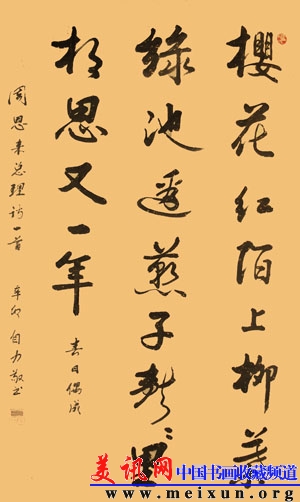 樱花红陌上柳叶
绿池边燕子声々里
相思又一年
春日偶成
周恩来总理诗一首
辛卯 自力敬书
美讯网
中国书画收藏频道
www.meixun.org